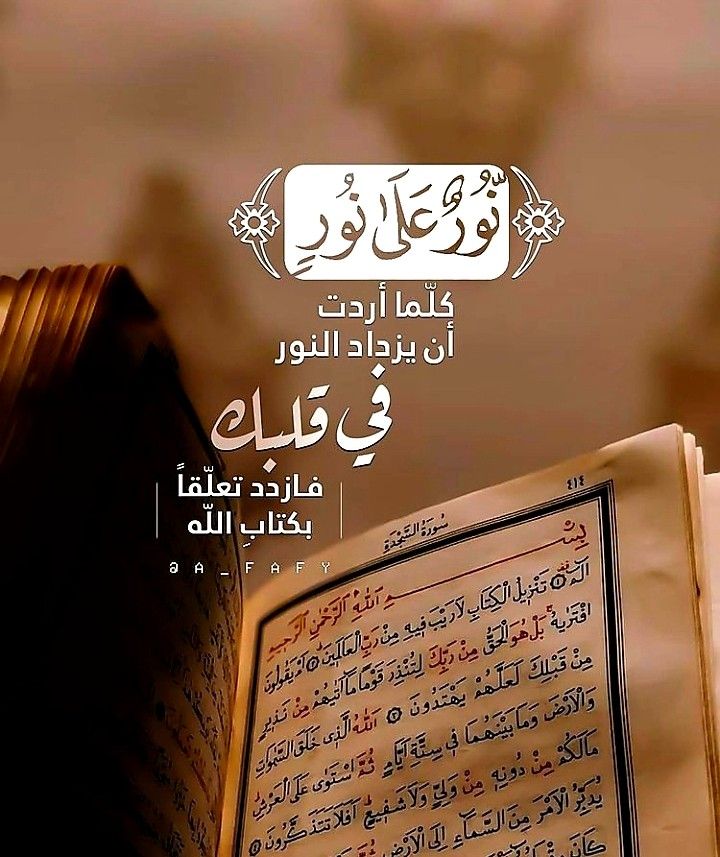 نُّورٌ عَلَىٰ نُورٍ
كلّما أردت
أن يزداد النور
في قلبك
فازدد تعلّقاً
بكتابِ اللّه
@A_FAFY
٤١٤
سُورَةُ السَّجْدَةِ
بِسْــــمِ اللهِ الرَّحْمٰنِ الرَّحِيمِ
الٓمٓ ۞ تَنْزِيلُ الْكِتَابِ لَارَيْبَ فِيهِ مِنْ رَبِّ الْعَالَمِينَ ۞ اَمْ يَقُولُونَ
افْتَرٰيهُ بَلْ هُوَ الْحَقُّ مِنْ رَبِّكَ لِتُنْذِرَ قَوْمًا مَا اَتٰيهُمْ مِنْ نَذِيرٍ
مِنْ قَبْلِكَ لَعَلَّهُمْ يَهْتَدُونَ ۞ اَللهُ الَّذِي خَلَقَ السَّمٰوَاتِ
وَالْاَرْضَ وَمَا بَيْنَهُمَا فِي سِتَّةِ اَيَّامٍ ثُمَّ اسْتَوٰى عَلَى الْعَرْشِ
مَالَكُمْ مِنْ دُونِهِ مِنْ وَلِيٍّ وَلَا شَفِيعٍ اَفَلَا تَتَذَكَّرُونَ ۞
يُدَبِّرُ الْاَمْرَ مِنَ السَّمَاءِ اِلَى الْاَرْضِ